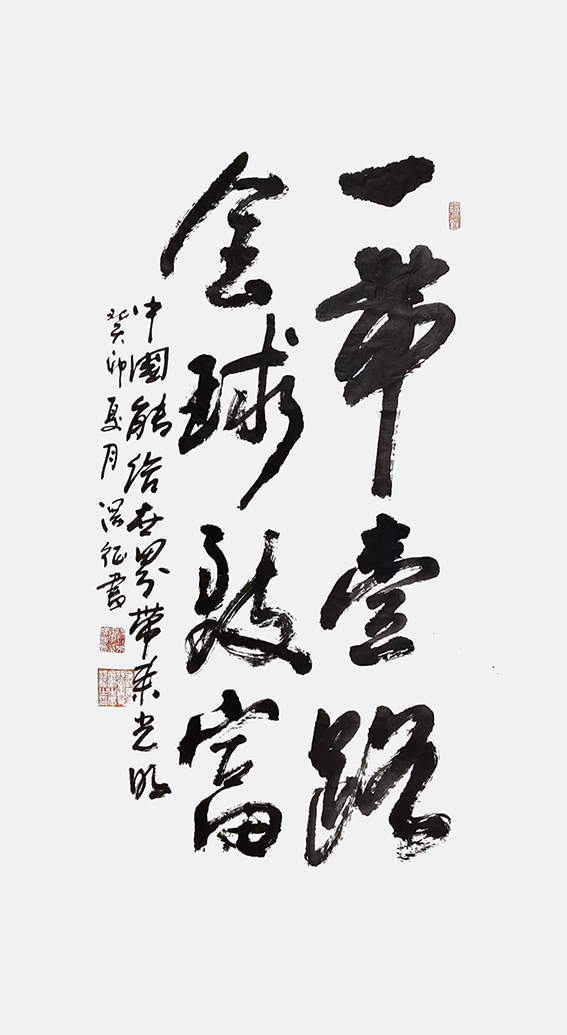 一带壹路
全球致富
中国能给世界带来光明
癸卯夏月 征书